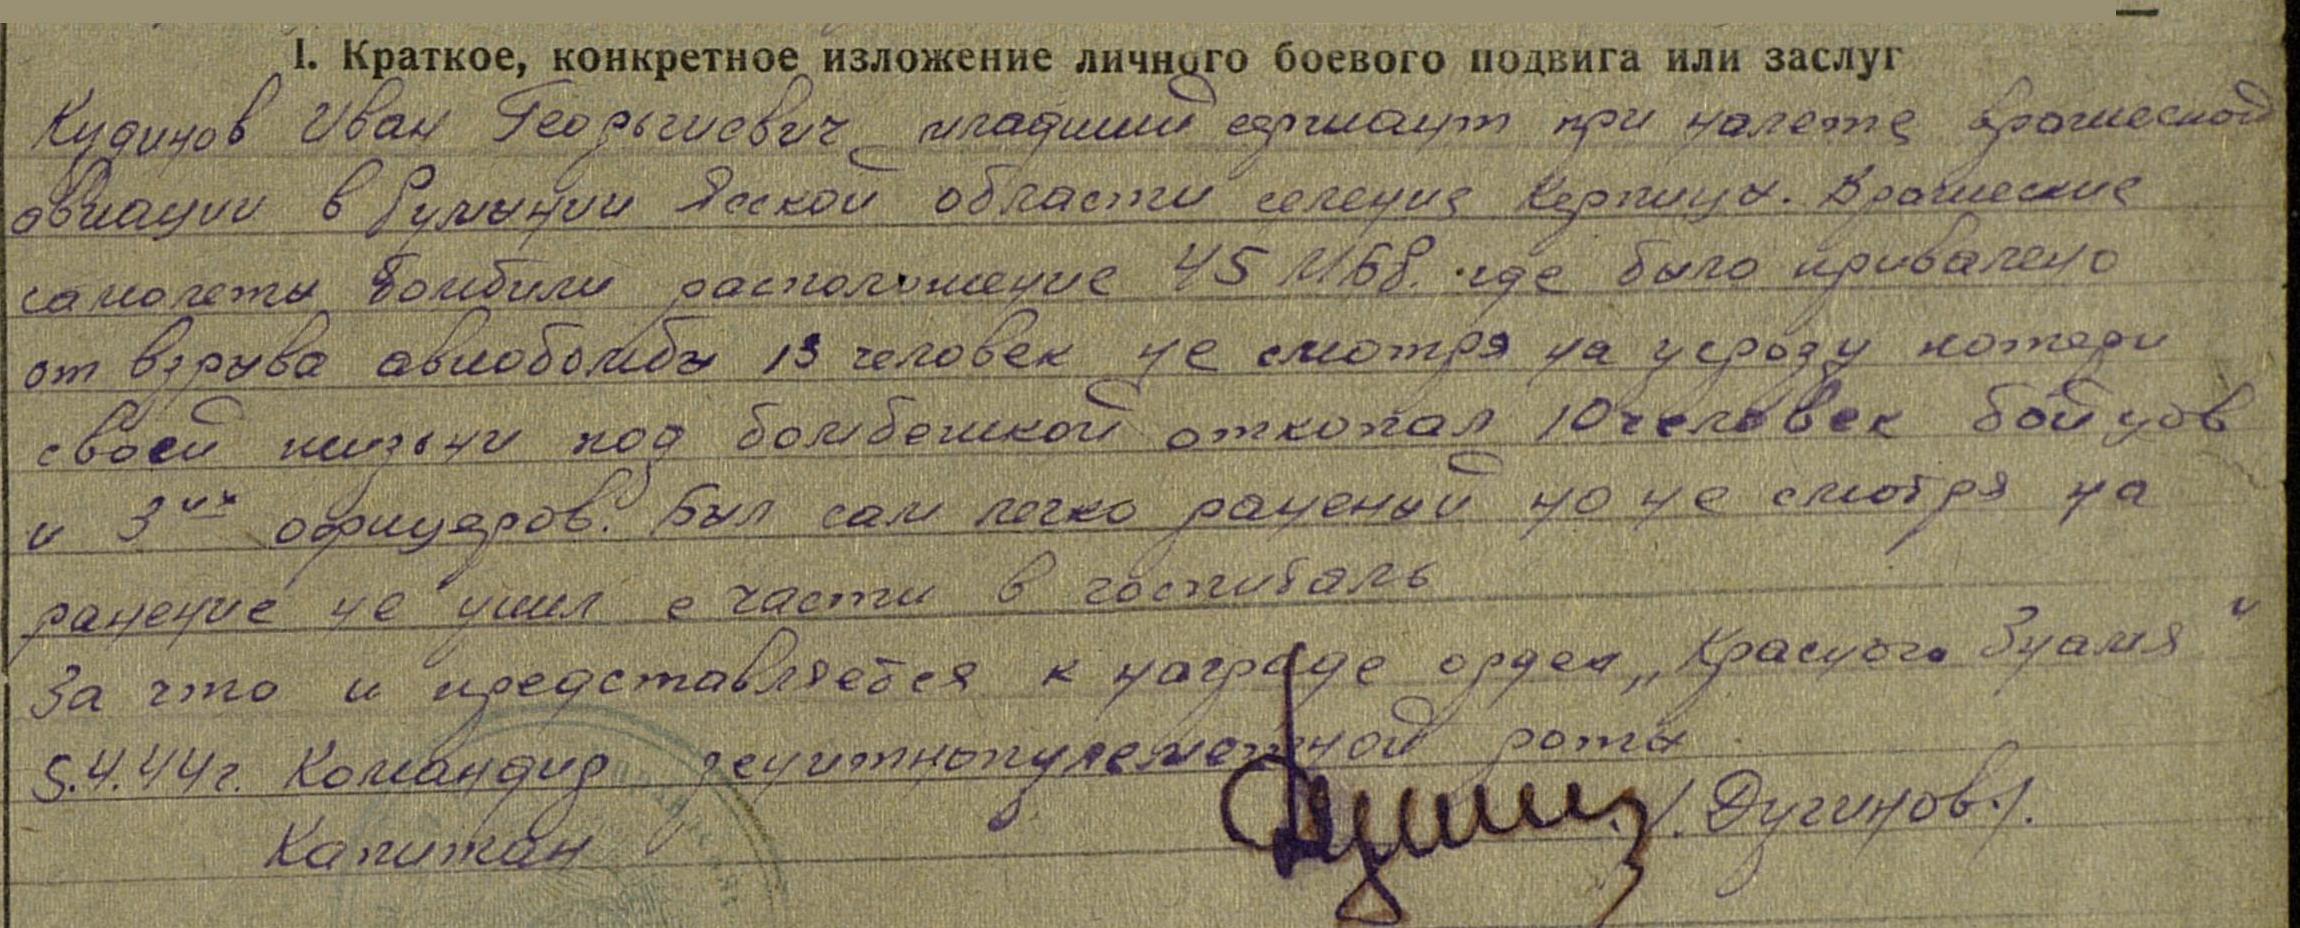 I. Краткое, конкретное изложение личного боевого подвига или заслуг
Кудинов Иван Георгиевич младший сержант при налете вражеской
авиации в Румынии Ясской области селение Керпицы. Вражеские
самолеты бомбили расположение 45 МБр. где было привалено
от взрыва авиобомбы 13 человек не смотря на угрозу потери
своей жизни под бомбежкой откопал 10 человек бойцов
и 3их офицеров. Был сам легко раненый но не смотря на
ранение не ушел с части в госпиталь
За что и представляется к награде орден „Красного Знамя"
5.4.44г. Командир зенитнопулеметной роты
Капитан /Дугинов/.